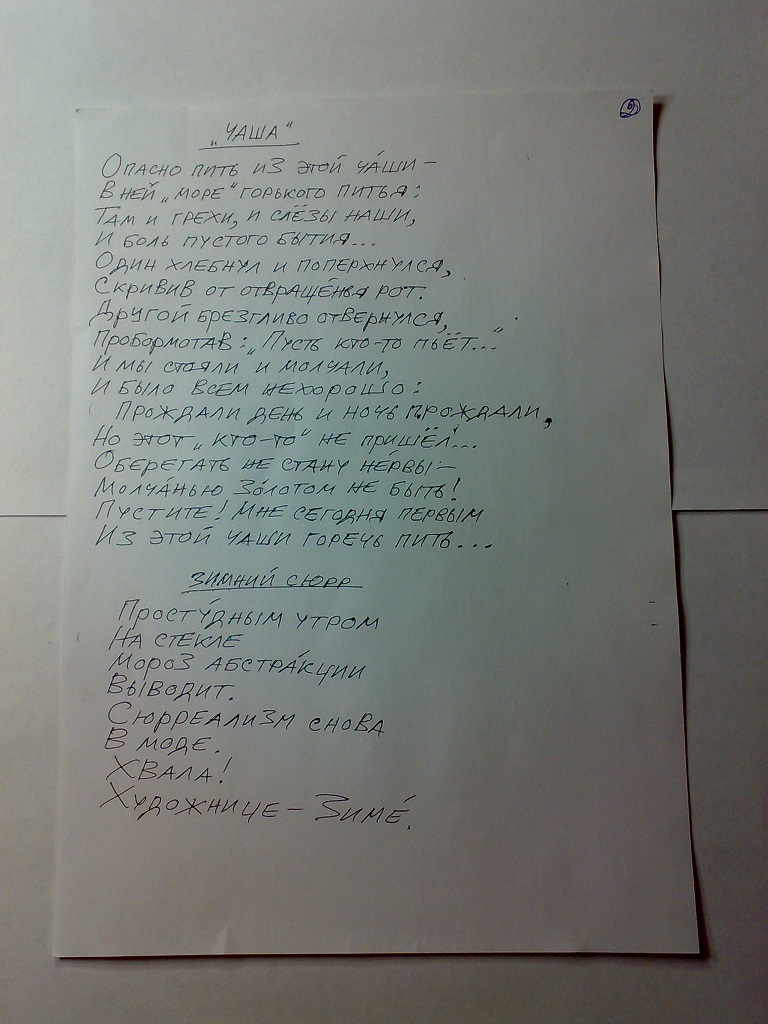 6
„ЧАША"
Опасно пить из этой ча́ши –
В ней „море" горького питья:
Там и грехи, и слёзы наши,
И боль пустого бытия...
Один хлебнул и поперхнулся,
Скривив от отвращенья рот.
Другой брезгливо отвернулся,
Пробормотав: „Пусть кто-то пьёт..."
И мы стояли и молчали,
И было всем нехорошо:
Прождали день и ночь прождали,
Но этот „кто-то" не пришёл!...
Оберегать не стану не́рвы –
Молча́нью Зо́лотом не быть!
Пустите! Мне сегодня первым
Из этой чаши горечь пить...
ЗИМНИЙ СЮРР
Просту́дным утром
На стекле
Мороз абстра́кции
Выводит.
Сюрреализм снова
В моде.
Хвала!
Художнице – Зиме́.